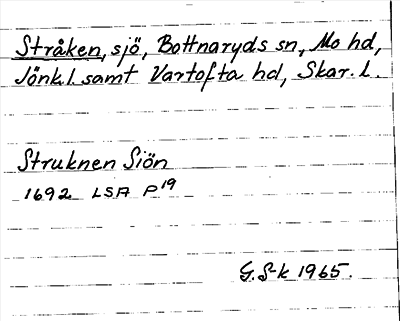 Stråken, sjö, Bottnaryds sn, Mo hd,
Jönk.l. samt Vartofta hd, Skar. l.
Struknen Siön
1692 LSA P19
G. S-k 1965.